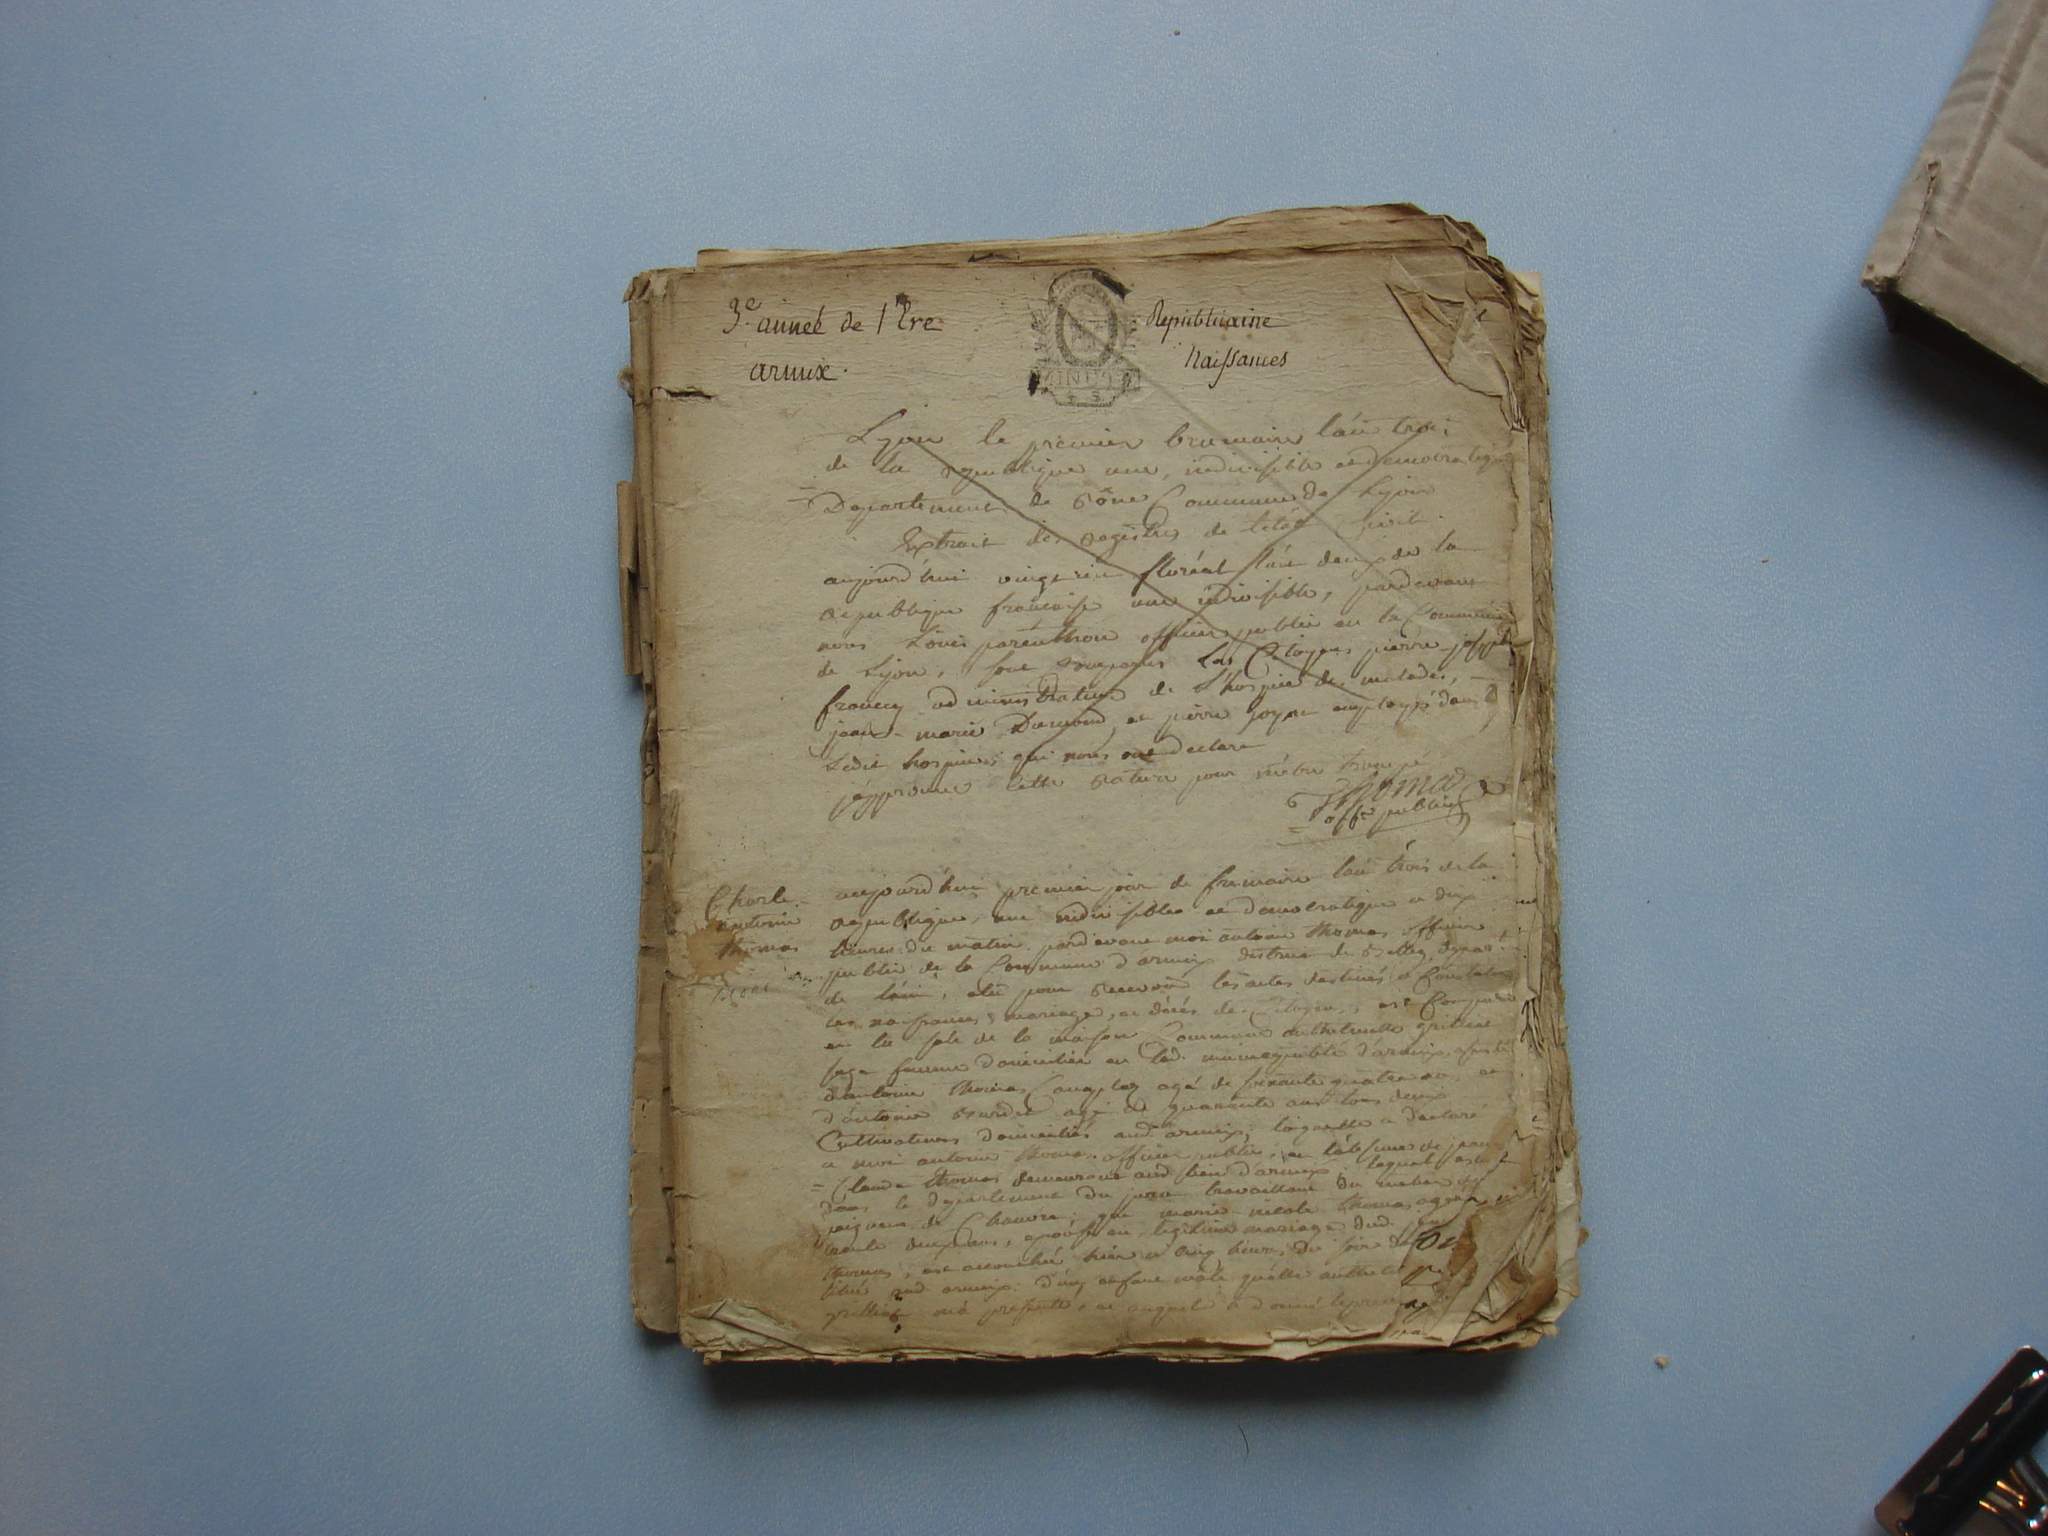 3e. année de l'Ere Républicaine
armix. Naissances
MINUTE
Lyon le premier brumaire l'an trois
de la republique une, indivisible et democratique
Departement de Rône Commune de Lyon
Extrait des registres de l'etat Civil.
aujourd'hui vingt six floréal l'an deux de la
republique françaisse une indivisible, pardevant
nous Louis officier public en la Commune
de Lyon, sont comparus Les Citoyens pierre joseph
administrateur de L'hospice des malades,
jean-marie Dumond, et pierre employés dans
Ledit hospices qui nous ont declaré
j'approuve cette rature pour m'être trompé
Thomas
offer public
Charle aujourd'hui premier jour de frimaire l'an trois de la
antoine republique, une indivisible et democratique a dix
thomas heures du matin, pardevant moi antoine thomas officier
public de la Commune d'armix district de Belley, depart.
de l'ain, elu pour recevoir les actes destinés a Constater
les naissances, mariages, et décès des Citoyens, est Comparu
en la sale de la maison Commune anthelmette
sage femme domiciliée en lad. municipalité d'armix, assisté
d'antoine thomas agé de soixante quatre ans, et
d'antoine agé de quarante ans tous deux
Cultivateurs domiciliés aud. armix; laquelle a declaré
a moi antoine thomas officier public, en l'absence de jean
= Claude thomas demeurant aud. lieu d'armix, lequel est
dans le departement du jura travaillant du metier de
peigneur de Chanvre, que marie nicole thomas agée de
trente deux ans, epouse en legitime mariage dud. jean
thomas, est accouchée hier a Cinq heures du soir
aud. armix d'un enfant mâle qu'elle
m'a presenté, et auquel a donné le prenom